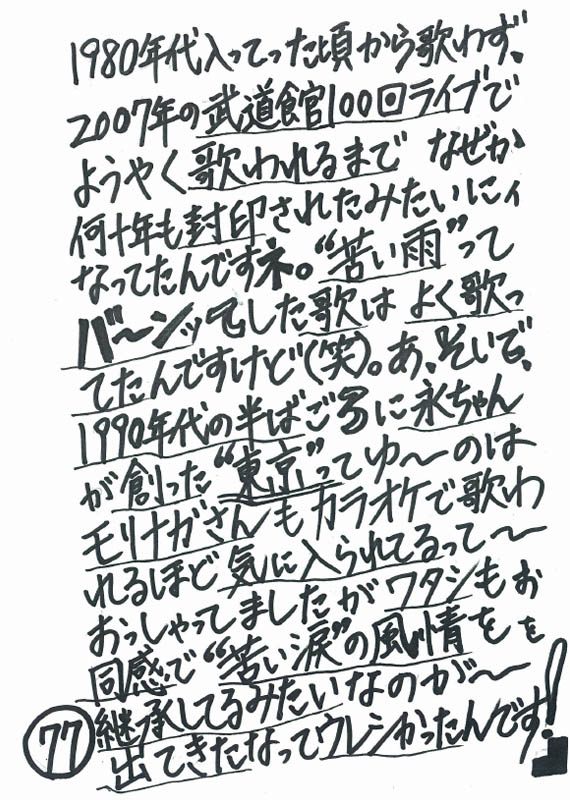 1980年代入ってった頃から歌わず、
2007年の武道館100回ライブで
ようやく歌われるまで なぜか
何十年も封印されたみたいにィ
なってたんですネ。“苦い雨”って
バ〜ンッてした歌は よく歌っ
てたんですけど(笑)。あ、そいで、
1990年代の半ばごろに永ちゃん
が創った“東京”ってゆ〜のは
モリナガさんもカラオケで歌わ
れるほど気に入られてるって〜
おっしゃってましたがワタシもぉ
同感で“苦い涙”の風情をを
継承してるみたいなのが〜
出てきたなってウレシかったんです!
77